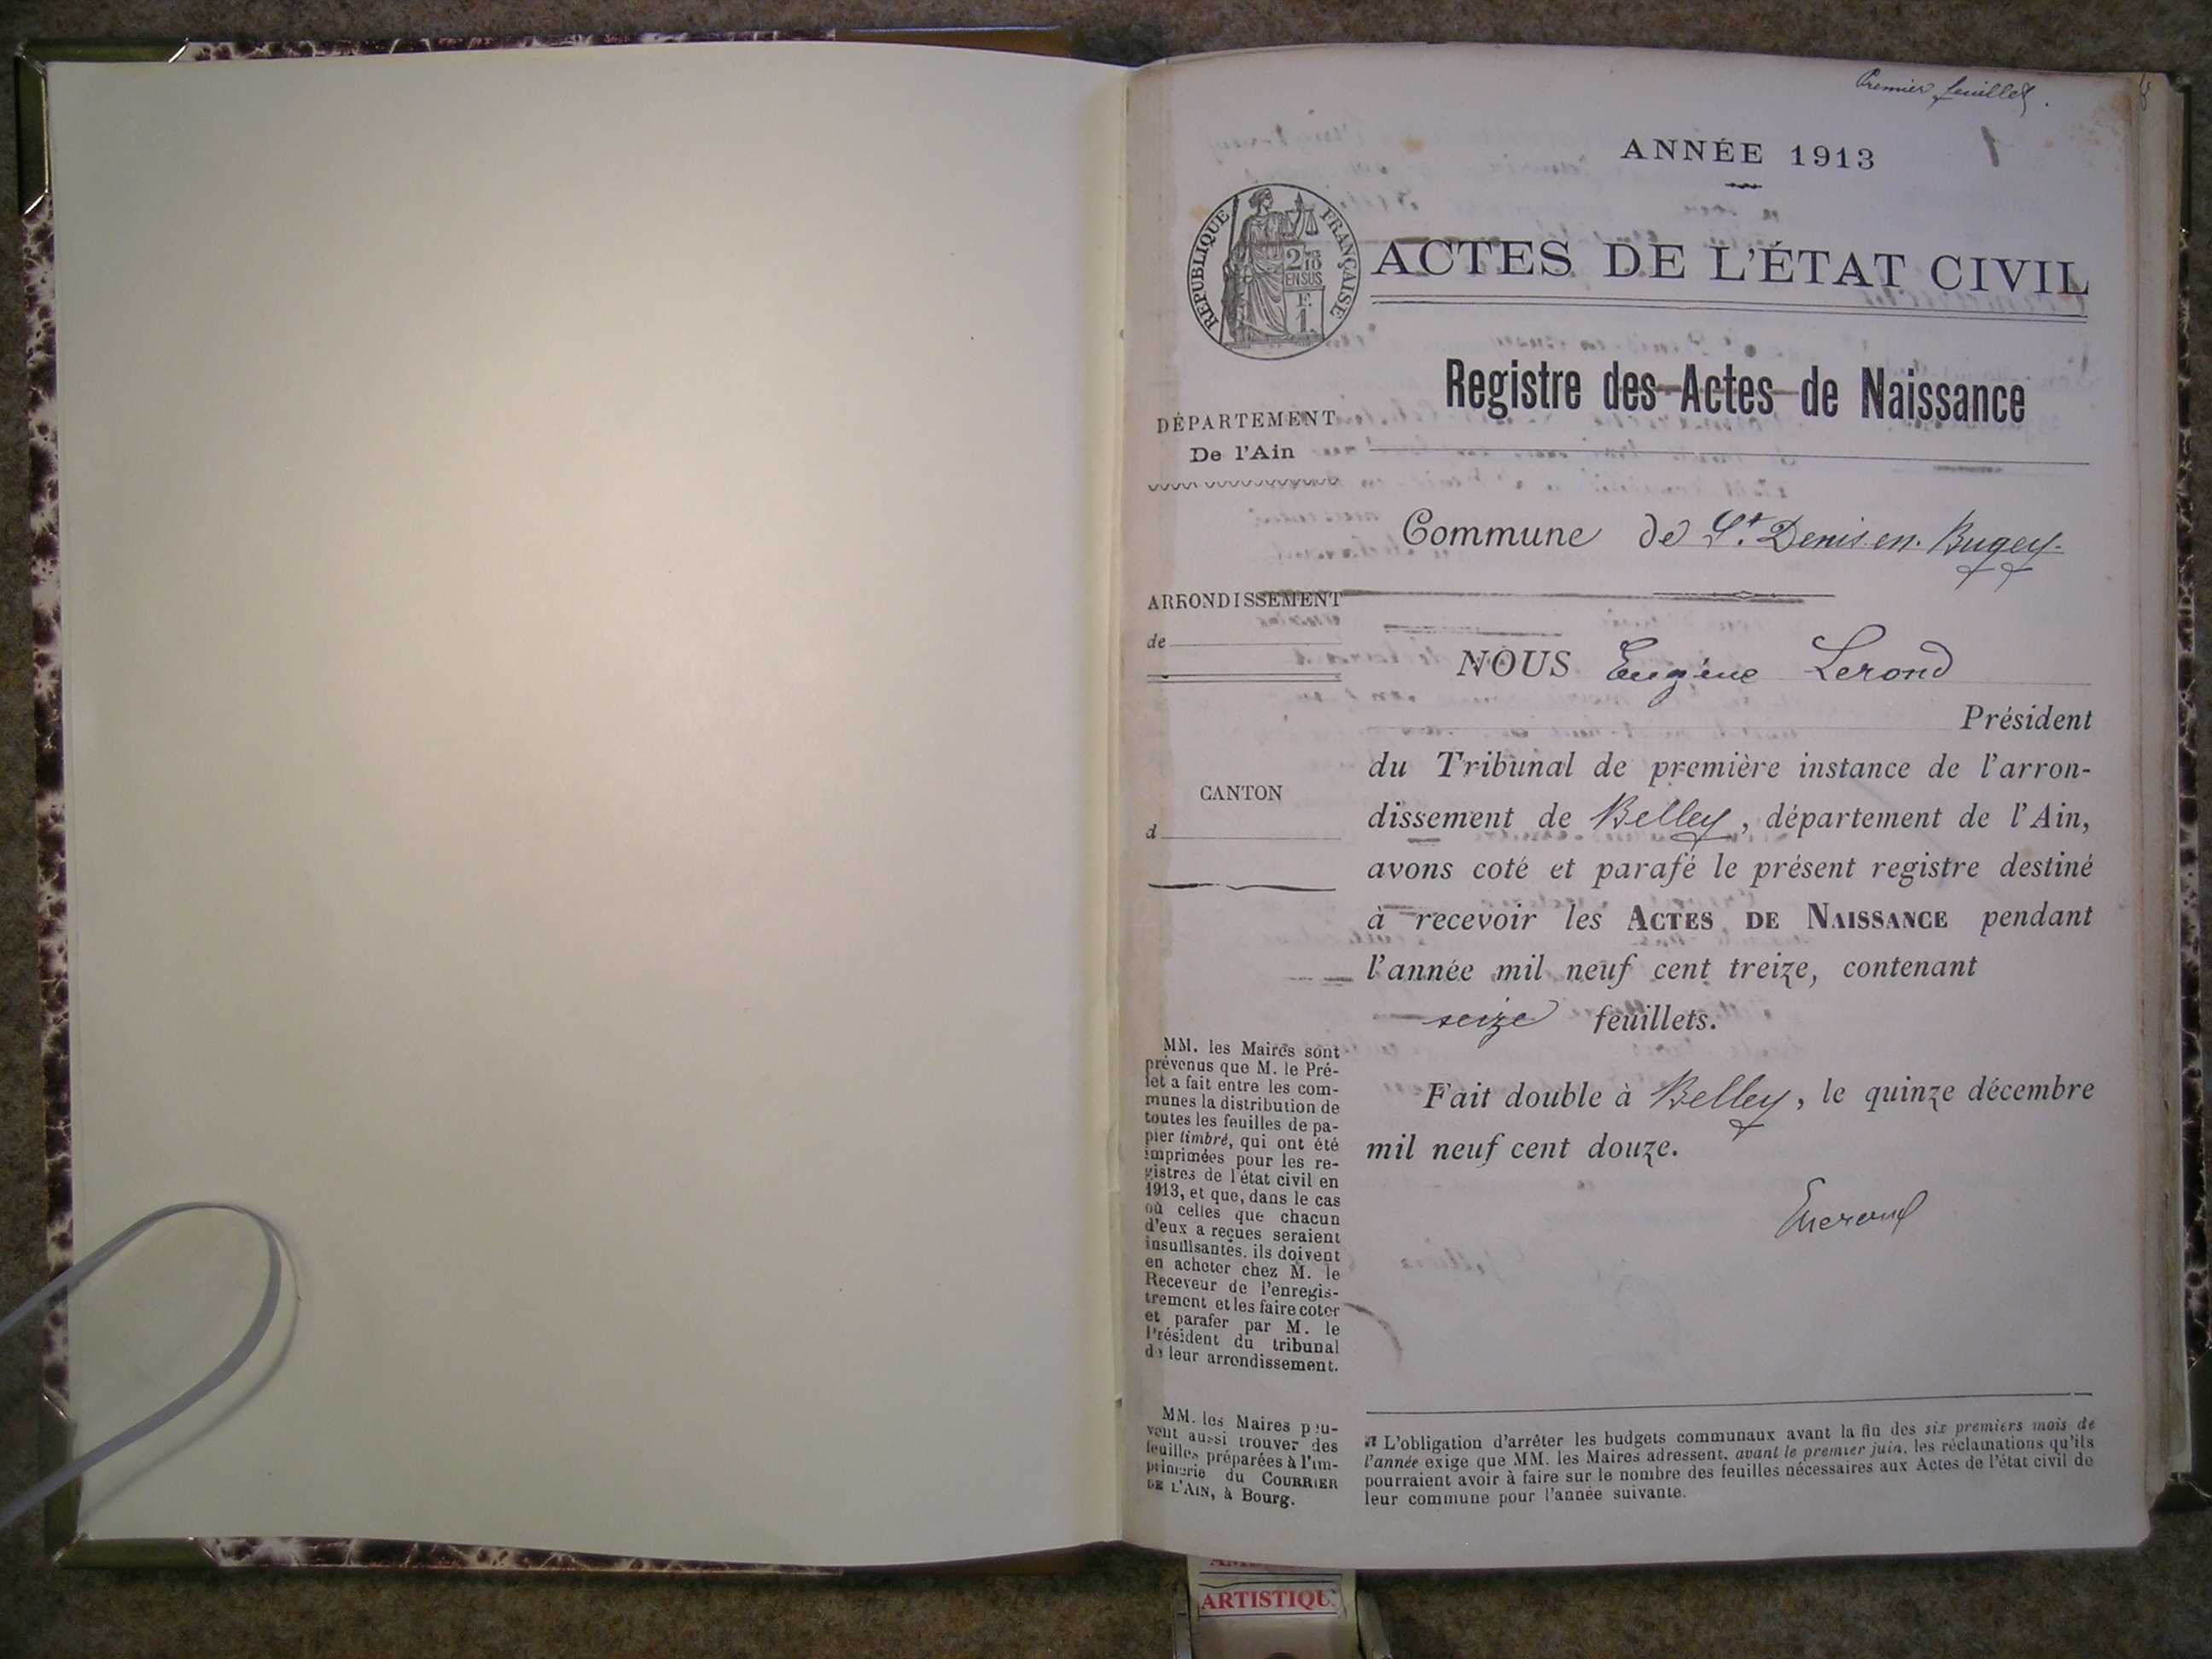 Premier feuillet.
1
ANNÉE 1913
RÉPUBLIQUE FRANÇAISE
2/10
EN SUS
F.
1.
ACTES DE L'ÉTAT CIVIL
Registre des Actes de Naissance
DÉPARTEMENT
De l'Ain
Commune de St. Denis en Bugey
ARRONDISSEMENT
de
NOUS Eugène Lerond
Président
du Tribunal de première instance de l'arron-
dissement de Belley, département de l'Ain,
avons coté et parafé le présent registre destiné
à recevoir les ACTES DE NAISSANCE pendant
l'année mil neuf cent treize, contenant
seize feuillets.
CANTON
d
Fait double à Belley, le quinze décembre
mil neuf cent douze.
MM. les Maires sont
prévenus que M. le Pré-
fet a fait entre les com-
munes la distribution de
toutes les feuilles de pa-
pier timbré, qui ont été
imprimées pour les re-
gistres de l'état civil en
1913, et que, dans le cas
où celles que chacun
d'eux a reçues seraient
insuffisantes, ils doivent
en acheter chez M. le
Receveur de l'enregis-
trement et les faire coter
et parafer par M. le
Président du tribunal
de leur arrondissement.
MM. les Maires peu-
vent aussi trouver des
feuilles préparées à l'im-
primerie du COURRIER
DE L'AIN, à Bourg.
L'obligation d'arrêter les budgets communaux avant la fin des six premiers mois de
l'année exige que MM. les Maires adressent, avant le premier juin, les réclamations qu'ils
pourraient avoir à faire sur le nombre des feuilles nécessaires aux Actes de l'état civil de
leur commune pour l'année suivante.
ARTISTIQU